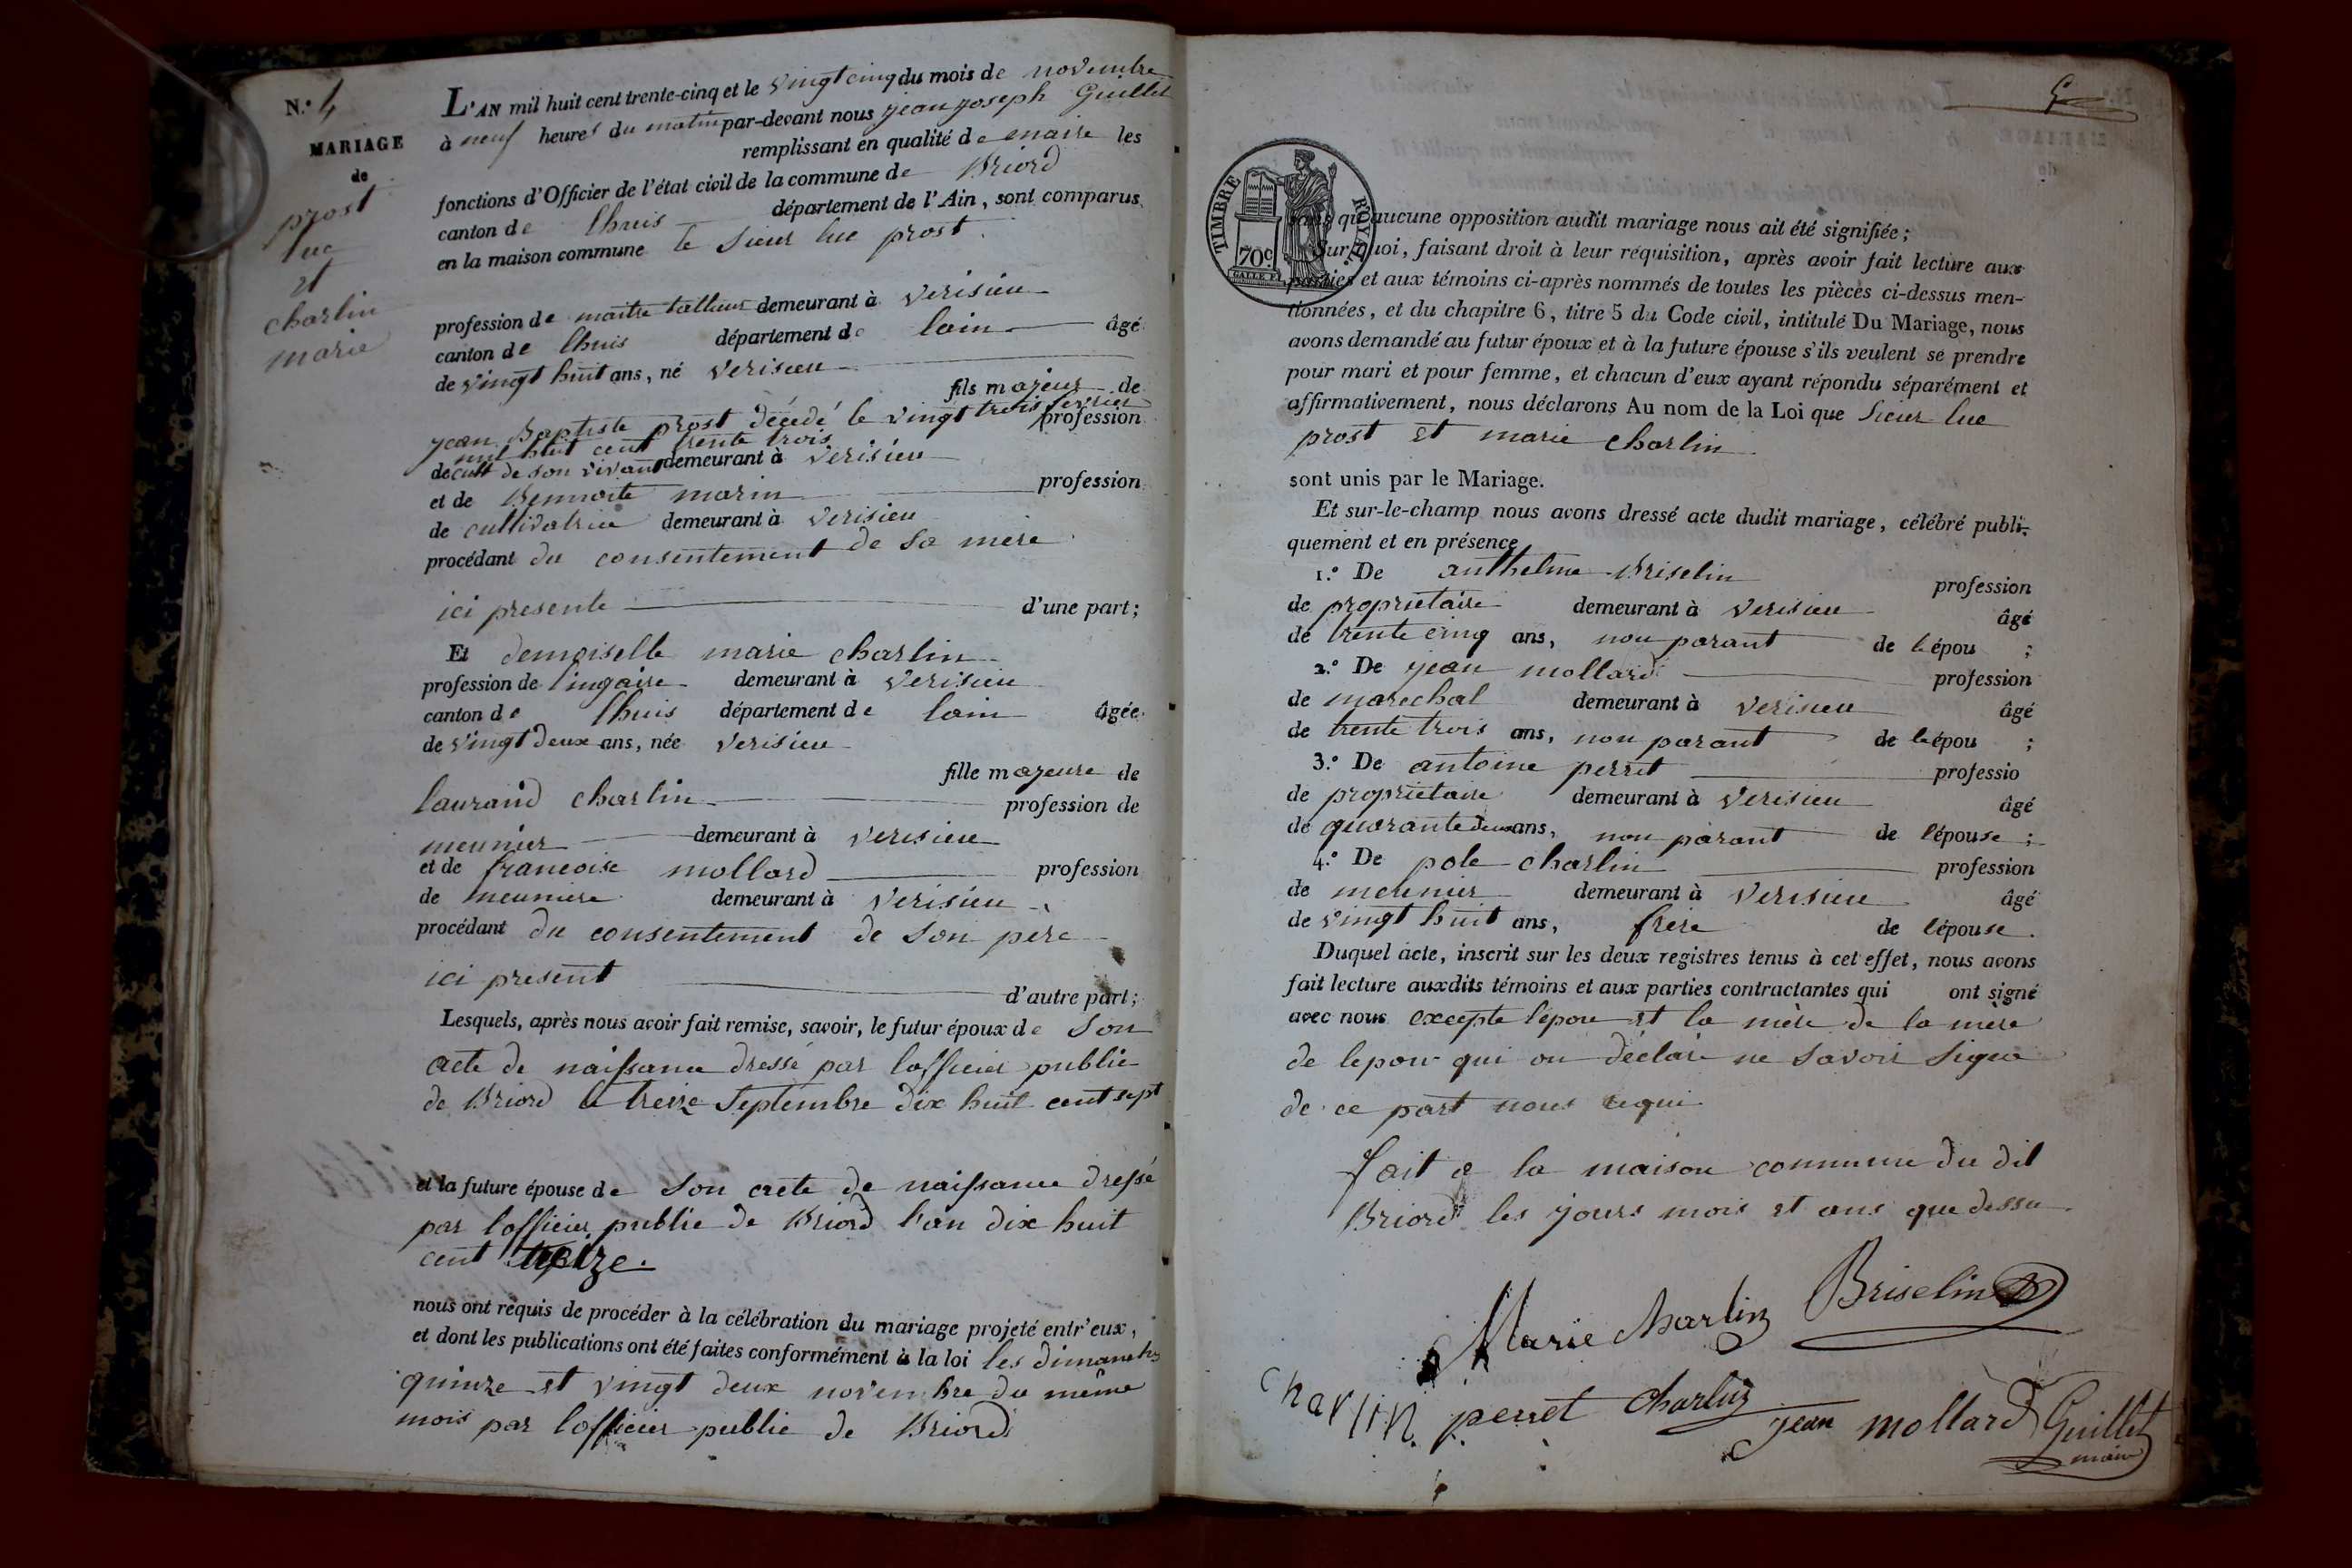 N.º 4
MARIAGE
de
prost
luc
et
charlin
marie
L'AN mil huit cent trente-cinq et le vingt cinq du mois de novembre
à neuf heures du matin par-devant nous jean joseph Guillet
remplissant en qualité de maire les
fonctions d'Officier de l'état civil de la commune de Briord
canton de lhuis département de l'Ain, sont comparus
en la maison commune le Sieur luc prost
profession de maitre tailleur demeurant à verisieu
canton de lhuis département de lain âgé
de vingt huit ans, né verisieu
fils majeur de
jean Baptiste prost décédé le vingt trois fevrier profession
mil huit cent trente trois
de cult de son vivant demeurant à verisieu
et de Bennoite marin profession
de cultivatrice demeurant à verisieu
procédant du consentement de sa mere
ici presente d'une part;
Et demoiselle marie charlin
profession de lingaire demeurant à verisieu
canton de lhuis département de lain âgée
de vingt deux ans, née verisieu
fille majeure de
laurand charlin profession de
meunier demeurant à verisieu
et de francoise mollard profession
de meuniere demeurant à verisieu
procédant du consentement de son père
ici présent d'autre part;
Lesquels, après nous avoir fait remise, savoir, le futur époux de Son
acte de naissance dressé par lofficier public
de Briord le treize Septembre dix huit cent sept
et la future épouse de Son acte de naissance dressé
par lofficier public de Briord l'an dix huit
cent treize.
nous ont requis de procéder à la célébration du mariage projeté entr'eux,
et dont les publications ont été faites conformément à la loi les dimanches
quinze et vingt deux novembre du même
mois par lofficier public de Briord
TIMBRE ROYAL
70c
sans qu'aucune opposition audit mariage nous ait été signifiée;
Sur quoi, faisant droit à leur réquisition, après avoir fait lecture aux
parties et aux témoins ci-après nommés de toutes les pièces ci-dessus men-
tionnées, et du chapitre 6, titre 5 du Code civil, intitulé Du Mariage, nous
avons demandé au futur époux et à la future épouse s'ils veulent se prendre
pour mari et pour femme, et chacun d'eux ayant répondu séparément et
affirmativement, nous déclarons Au nom de la Loi que Sieur luc
prost et marie charlin
sont unis par le Mariage.
Et sur-le-champ nous avons dressé acte dudit mariage, célébré publi-
quement et en présence
1.º De anthelme Briselin profession
de proprietaire demeurant à verisieu âgé
de trente cinq ans, non parant de lépou ;
2.º De jean mollard profession
de marechal demeurant à verisieu âgé
de trente trois ans, non parant de lépou ;
3.º De antoine perret professio
de proprietaire demeurant à verisieu âgé
de quarante deux ans, non parant de lépouse ;
4.º De pole charlin profession
de meunier demeurant à verisieu âgé
de vingt huit ans, frere de lépouse.
Duquel acte, inscrit sur les deux registres tenus à cet effet, nous avons
fait lecture auxdits témoins et aux parties contractantes qui ont signé
avec nous excepte lépou et la mère de la mère
de lepou qui on déclare ne savoir signe
de ce part nous requi
fait a la maison commune du dit
Briord les jours mois et ans que dessu
Briselin
Marie charlin
charlin perret charlin jean mollard Guillet
maire